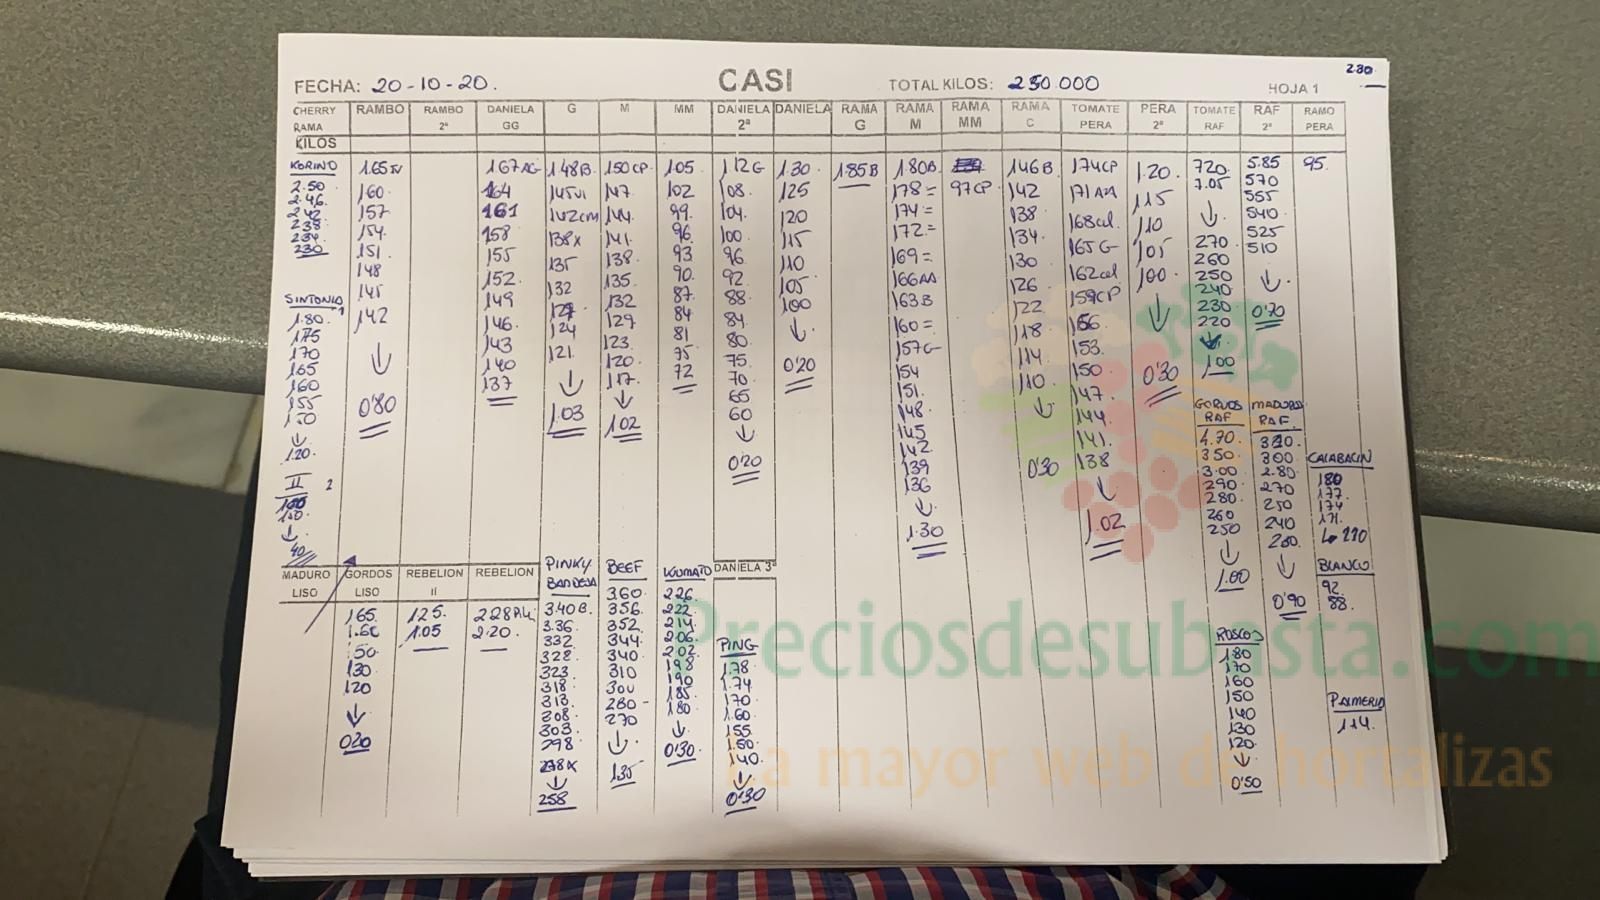 2.30
FECHA: 20-10-20. CASI TOTAL KILOS: 230.000 HOJA 1
CHERRY RAMA
KILOS
KORINO
2.50
2.46
2.42
2.38
2.34
2.30
SINTONIA 1
1.80
175
170
165
160
155
↓
120
II 2
↓
40
RAMBO
1.65
160
157
154
151
148
145
142
↓
0'80
RAMBO 2ª
DANIELA GG
167AG
164
161
158
155
152
149
146
143
140
137
G
1.48B
145
142cm
138x
135
132
127
124
121
↓
1.03
M
150CP
147
144
141
138
135
132
129
123
120
117
↓
102
MM
1.05
102
99
96
93
90
87
84
81
75
72
DANIELA 2ª
1.12G
108
104
100
96
92
88
84
80
75
70
65
60
↓
0'20
DANIELA
1.30
125
120
115
110
105
100
↓
0'20
RAMA G
1.85B
RAMA M
1.80B
178=
174=
172=
169=
166AA
163B
160=
157G
154
151
148
145
142
139
136
↓
1.30
RAMA MM
97CP
RAMA C
146B
142
138
134
130
126
122
118
114
110
↓
0'30
TOMATE PERA
1.74CP
168cal
165G
162cal
159CP
156
153
150
147
144
141
138
↓
1.02
PERA 2ª
1.20
115
110
105
100
↓
0'30
TOMATE RAF
720
7.05
↓
270
260
250
240
230
220
↓
1.00
RAF 2ª
5.85
570
555
540
525
510
↓
0'70
RAMO PERA
95
GORDOS RAF
4.70
350
3.00
290
280
260
250
↓
1.00
MADUROS RAF
300
2.80
270
250
240
200
↓
0'90
CALABACIN
180
177
174
171
BLANCO
92
88
MADURO LISO
GORDOS LISO
165
1.60
150
130
120
↓
020
REBELION II
125
1.05
REBELION
2.20
PINKY BANDEJA
3.40B
3.36
332
328
323
318
313
308
303
298
↓
258
BEEF
360
356
352
344
340
310
300
280
270
↓
135
KUMATO
226
222
214
2.06
2.02
198
190
185
180
↓
0'30
DANIELA 3ª
PING
1.78
1.74
170
1.60
155
1.50
140
↓
0'30
ROSCOS
180
170
160
150
140
130
120
↓
0'50
PALMERIN
114
Preciosdesubasta.com
La mayor web de hortalizas